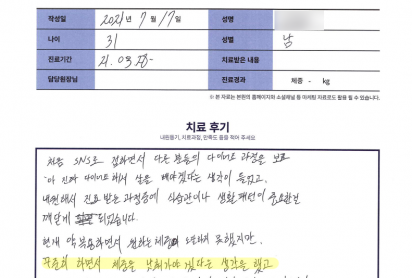 작성일 2021년 7월 17일 성명
나이 31 성별 남
진료기간 21. 03. 28~ 치료받은 내용
담당원장님 진료경과 체중 - kg
※ 본 자료는 본원의 홈페이지와 소셜채널 등 마케팅 자료로도 활용 될 수 있습니다.
치료 후기
내원동기, 치료과정, 만족도 등을 적어 주세요
처음 SNS로 접하면서 다른 분들의 다이어트 과정을 보고
"아 진짜 다이어트 해서 살을 빼야겠다는 생각이 들었고,
내원해서 진료 받는 과정중에 식습관이나 생활패턴이 중요한걸
깨닫게 되었습니다.
현재 약복용하면서 원하는 체중에 도달하지 못했지만,
꾸준히 하면서 체중을 낮춰가야 겠다는 생각을 했고